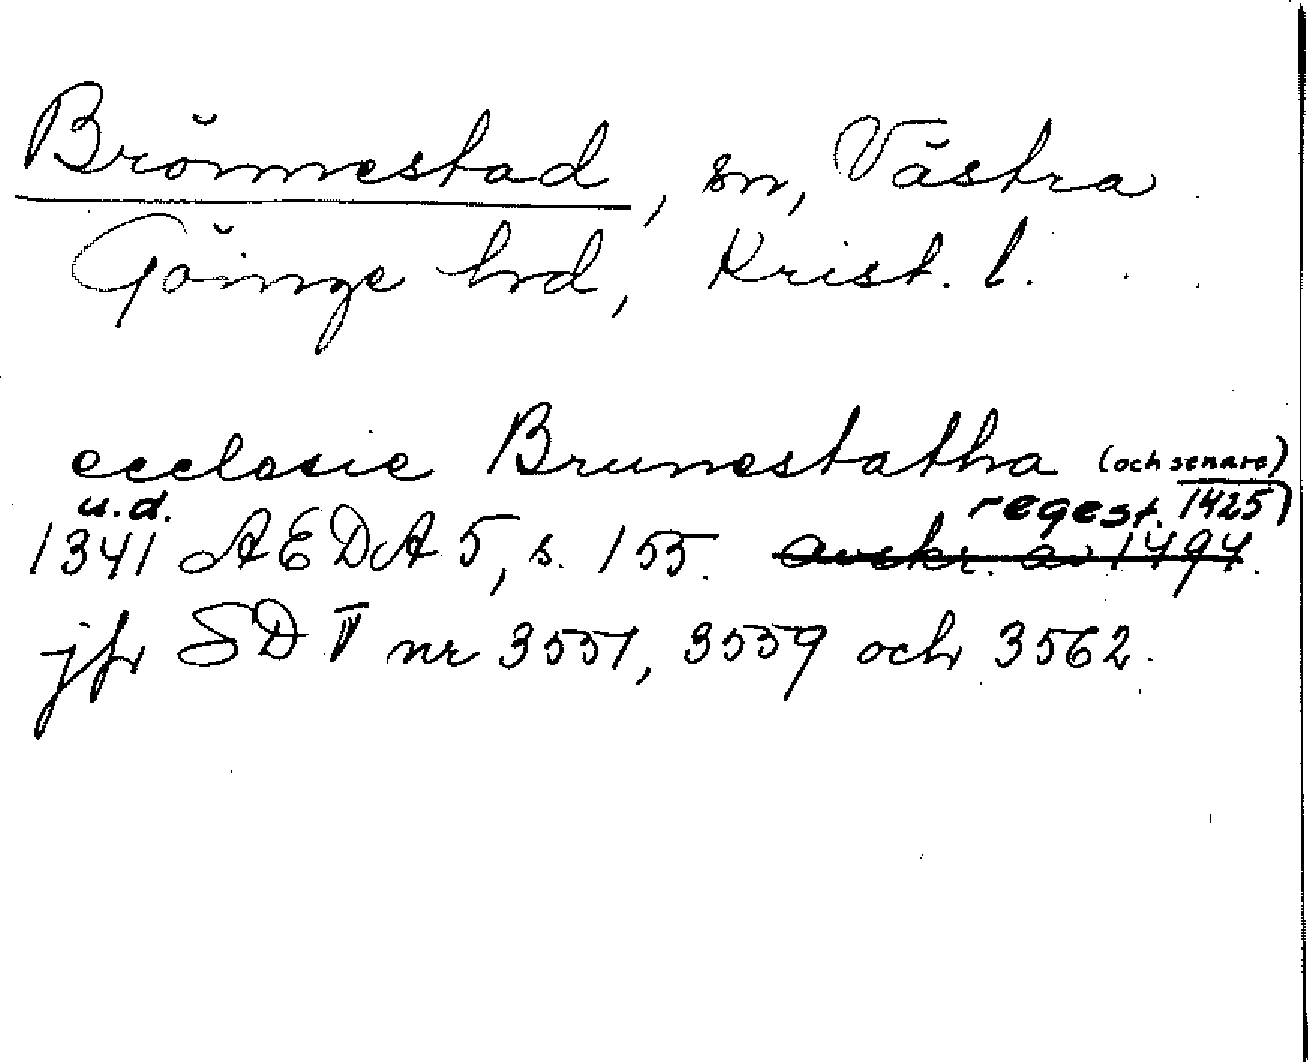 Brönnestad, sn, Västra
Göinge hrd, Krist. l.
ecclesie Brunestatha (och senare)
u.d. regest. 1425)
1341 AEDA 5, s. 155. avskr. av 1494.
jfr SD V nr 3551, 3559 och 3562.